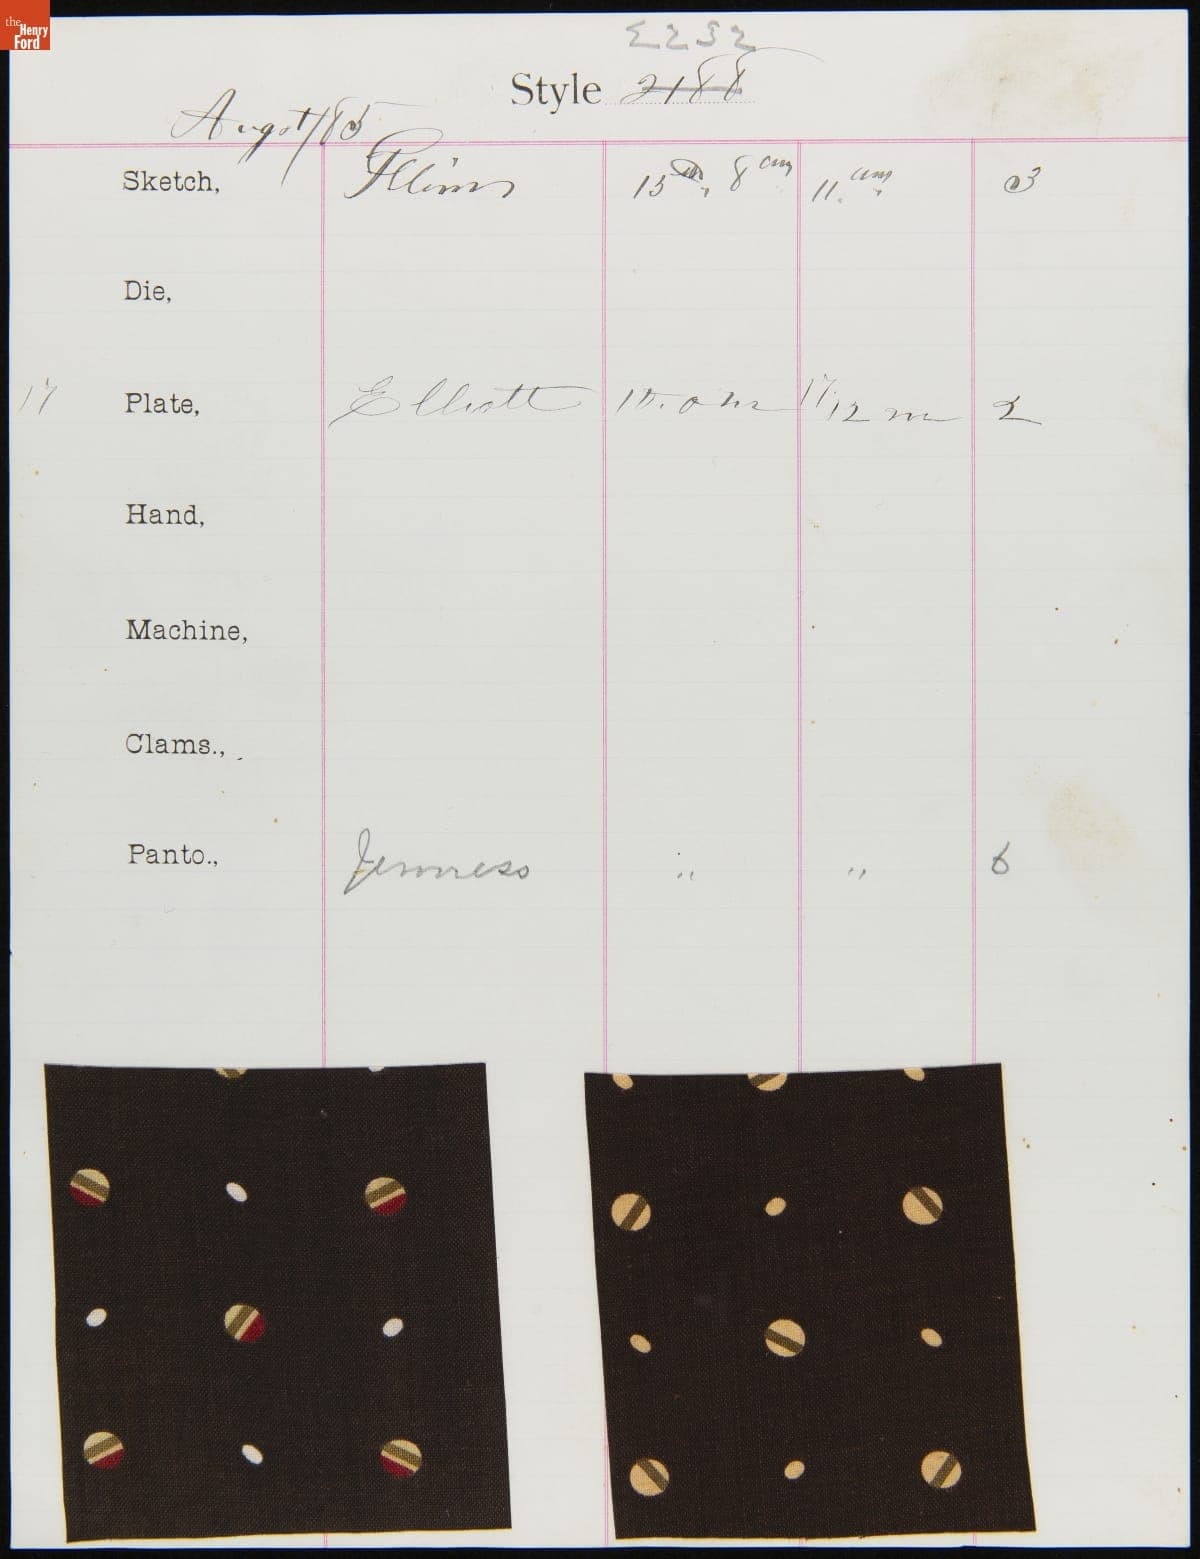 the
Henry
Ford
2252
Style 2188
Augst/85
Sketch, 15th, 8 am 11. am 3
Die,
17 Plate, Elliott 17/12 m 2
Hand,
Machine,
Clams.,
Panto., Jenness " " 6